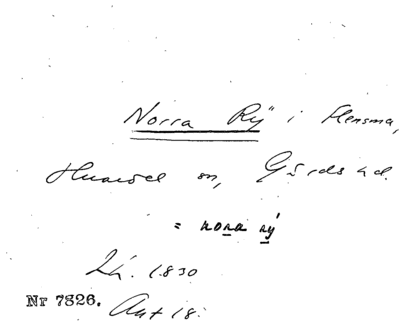 Norra Rÿ i Flensma,
Huaröd sn, Gärds hd.
= nora rý
Lh. 1830
Nr 7826. Ant 18.